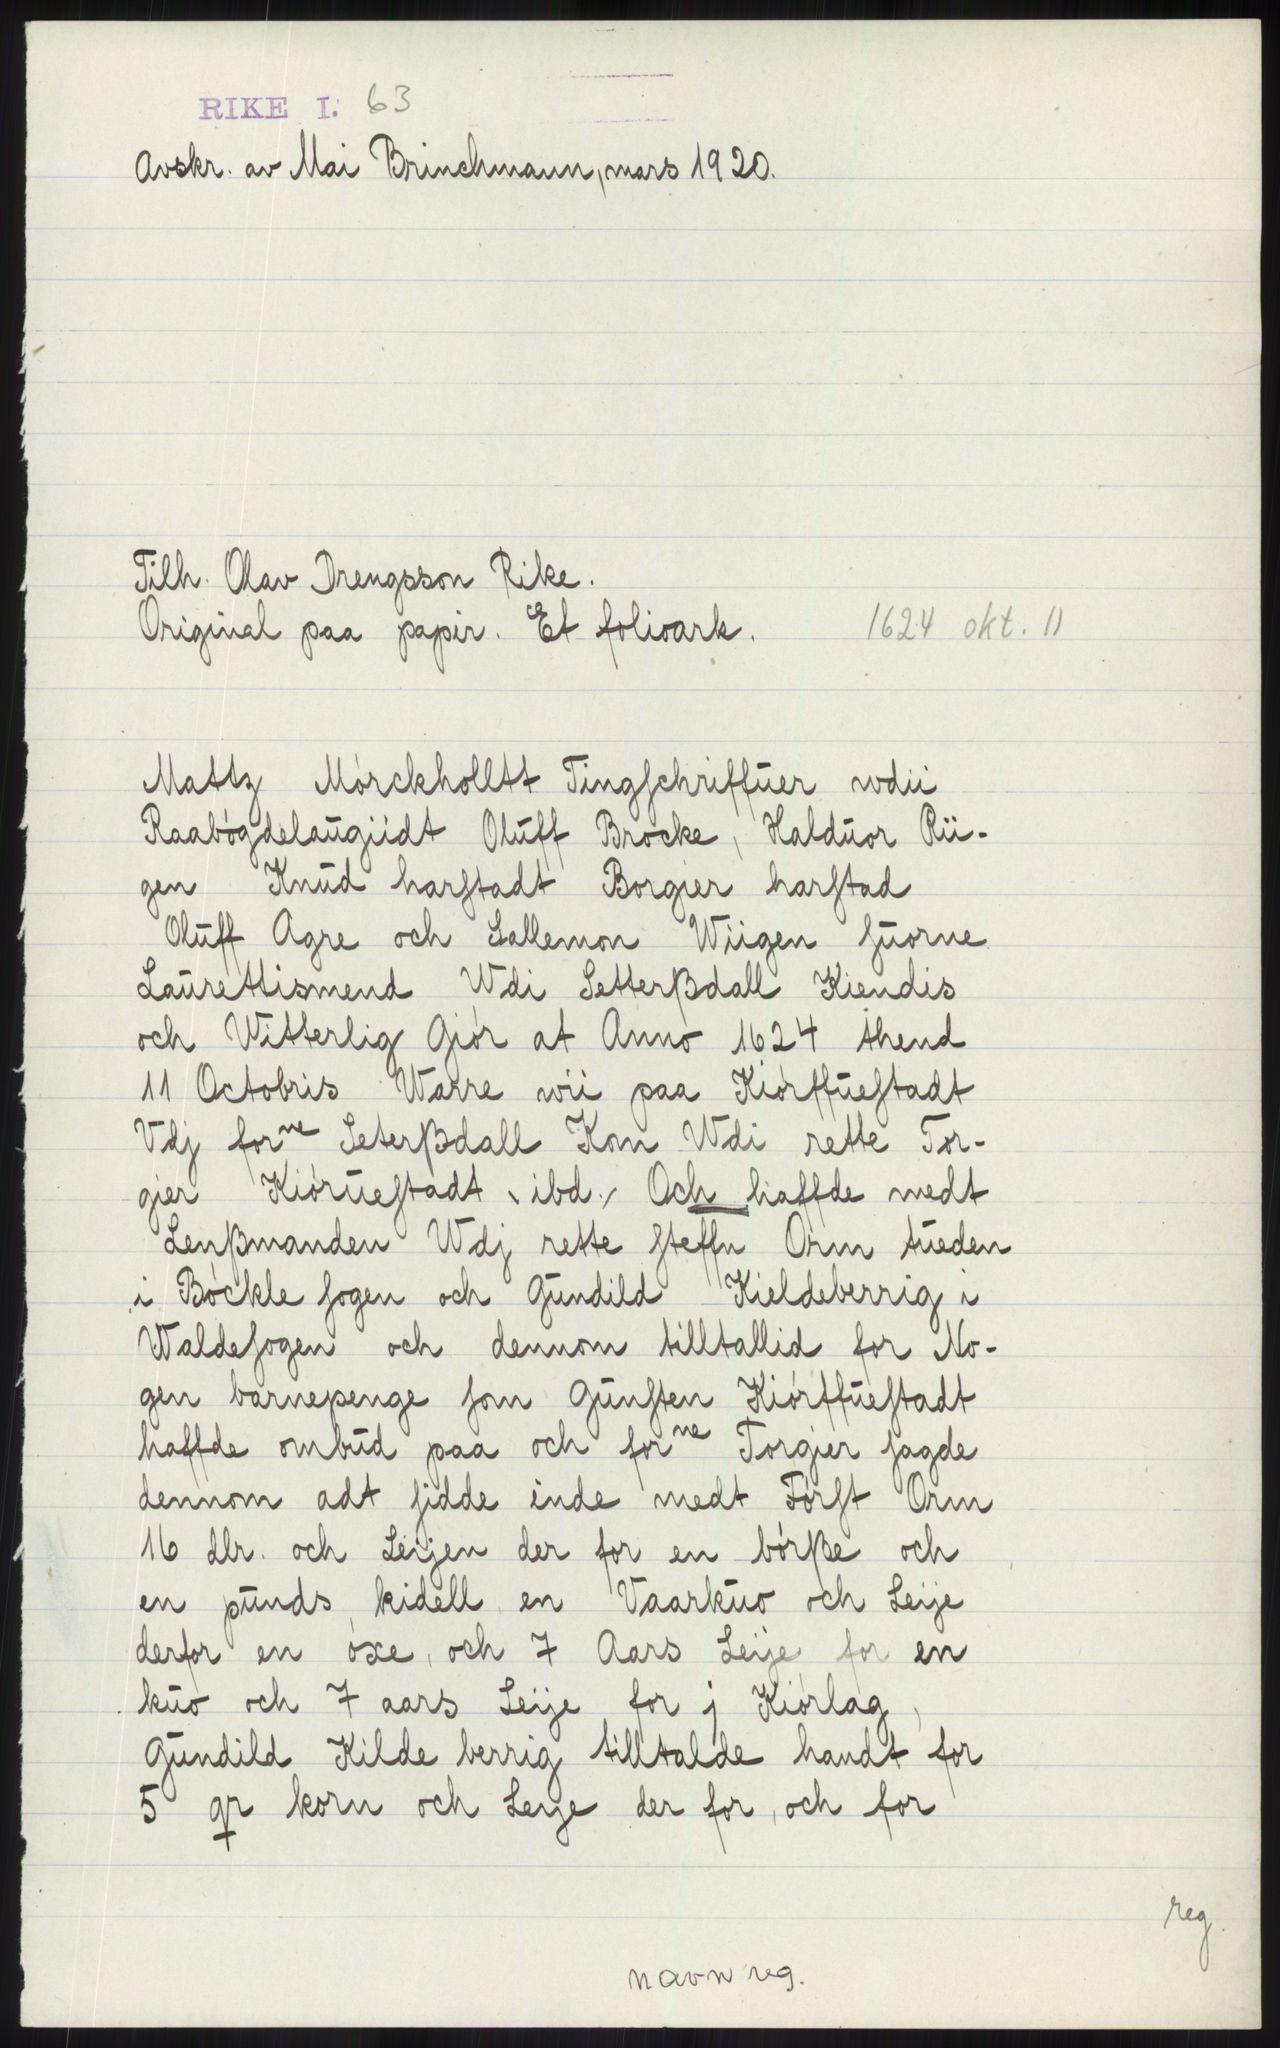 RIKE I. 63
Avskr. av Mai Brinchmann, mars 1920.
Tilh. Olav Drengsson Rike.
Original paa papir. Et folioark. 1624 okt. 11
Mattz Mórckholltt Tingſchriffŭer wdii
Raabógdelaŭgiidt Olŭff Brocke, Haldŭor Rii-
gen Knŭd harſtadt Borgier harſtad
Olŭff Agre och Sallemon Wiigen ſŭorne
Laŭrettismend Wdi Setterßdall Kiendis
och Witterlig Giór at Anno 1624 thend
11 Octobris Warre wii paa Kiórffŭeſtadt
Vdj forne Seterßdall Kom Wdi rette Tor-
gier Kiórŭeſtadt, ibd., Och haffde medt
Lenßmanden Wdj rette ſteffn Orm tŭeden
i Bóckle ſogen och Gŭndild Kieldeberrig i
Waldeſogen och dennom tilltallid for No-
gen barnepenge ſom Gŭnſten Kiórffŭeſtadt
haffde ombŭd paa och forne Torgier ſagde
dennom adt ſidde inde medt Fórſt Orm
16 dlr. och Leijen der for en bórße och
en pŭnds kidell en Vaarkŭo och Leije
derfor en óxe, och 7 Aars Leije for en
kŭo och 7 aars Leije for j Kiórlag,
Gŭndild Kilde berrig tilltalde handt for
5 qr korn och Leije der for, och for
reg.
navn reg.